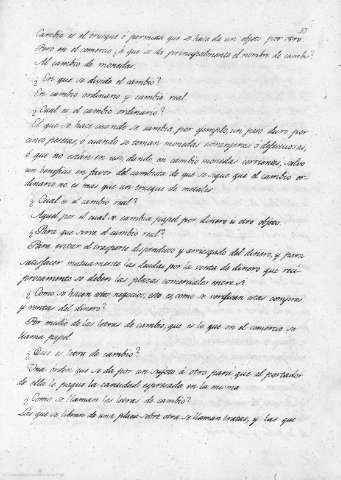 37
Cambio es el trueque ó permuta que se hace de un objeto por otro.
Pero en el comercio ¿á que se da principalmente el nombre de cambio?
Al cambio de monedas.
¿En que se divide el cambio?
En cambio ordinario y cambio real.
¿Cual es el cambio ordinario?
El que se hace cuando se cambia, por ejemplo, un peso duro por
cinco pesetas, o cuando se toman monedas estrangeras ó defectuosas,
ó que no estan en uso, dando en cambio monedas corrientes, salvo
un beneficio en favor del cambista de que se sigue que el cambio or-
dinario no es mas que un trueque de metales.
¿Cual es el cambio real?
Aquel por el cual se cambia papel por dinero u otro objeto.
¿Para que sirve el cambio real?
Para evitar el trasporte dispendioso y arriesgado del dinero, y para
satisfacer mutuamente las deudas por la venta de dinero que reci-
procamente se deben las plazas comerciales entre si.
¿Como se hacen estos negocios, esto es, como se verifican estas compras
y ventas del dinero?
Por medio de las letras de cambio, que es lo que en el comercio se
llama papel.
¿Que es letra de cambio?
Una orden que se da por un sujeto á otro para que al portador
de ella le pague la cantidad espresada en la misma.
¿Como se llaman las letras de cambio?
Las que se libran de una plaza sobre otra se llaman tratas, y las que